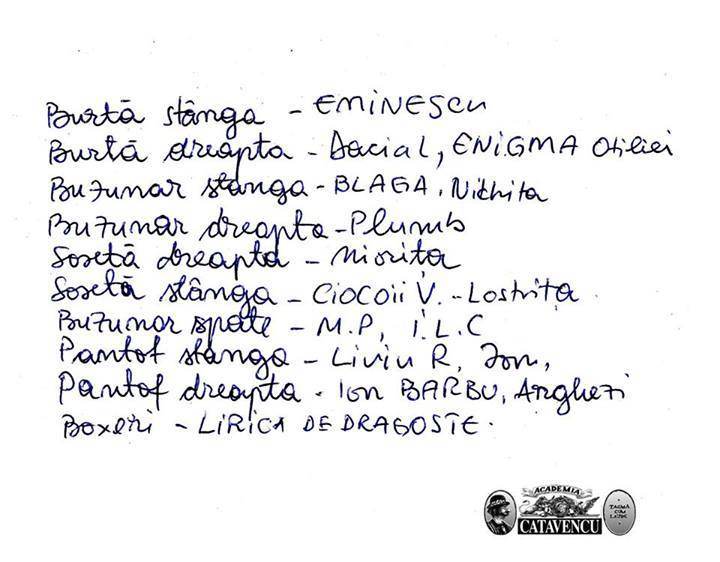 Burtă stânga - EMINESCU
Burtă dreapta - Dacial, ENIGMA Otiliei
Buzunar stânga - BLAGA, Nichita
Buzunar dreapta - Plumb
Sosetă dreapta - Miorița
Sosetă stânga - Ciocoii V. - Lostrița
Buzunar spate - M.P, I.L.C
Pantof stânga - Liviu R, Ion,
Pantof dreapta - Ion BARBU, Arghezi
Boxeri - LIRICA DE DRAGOSTE.
ACADEMIA
CATAVENCU